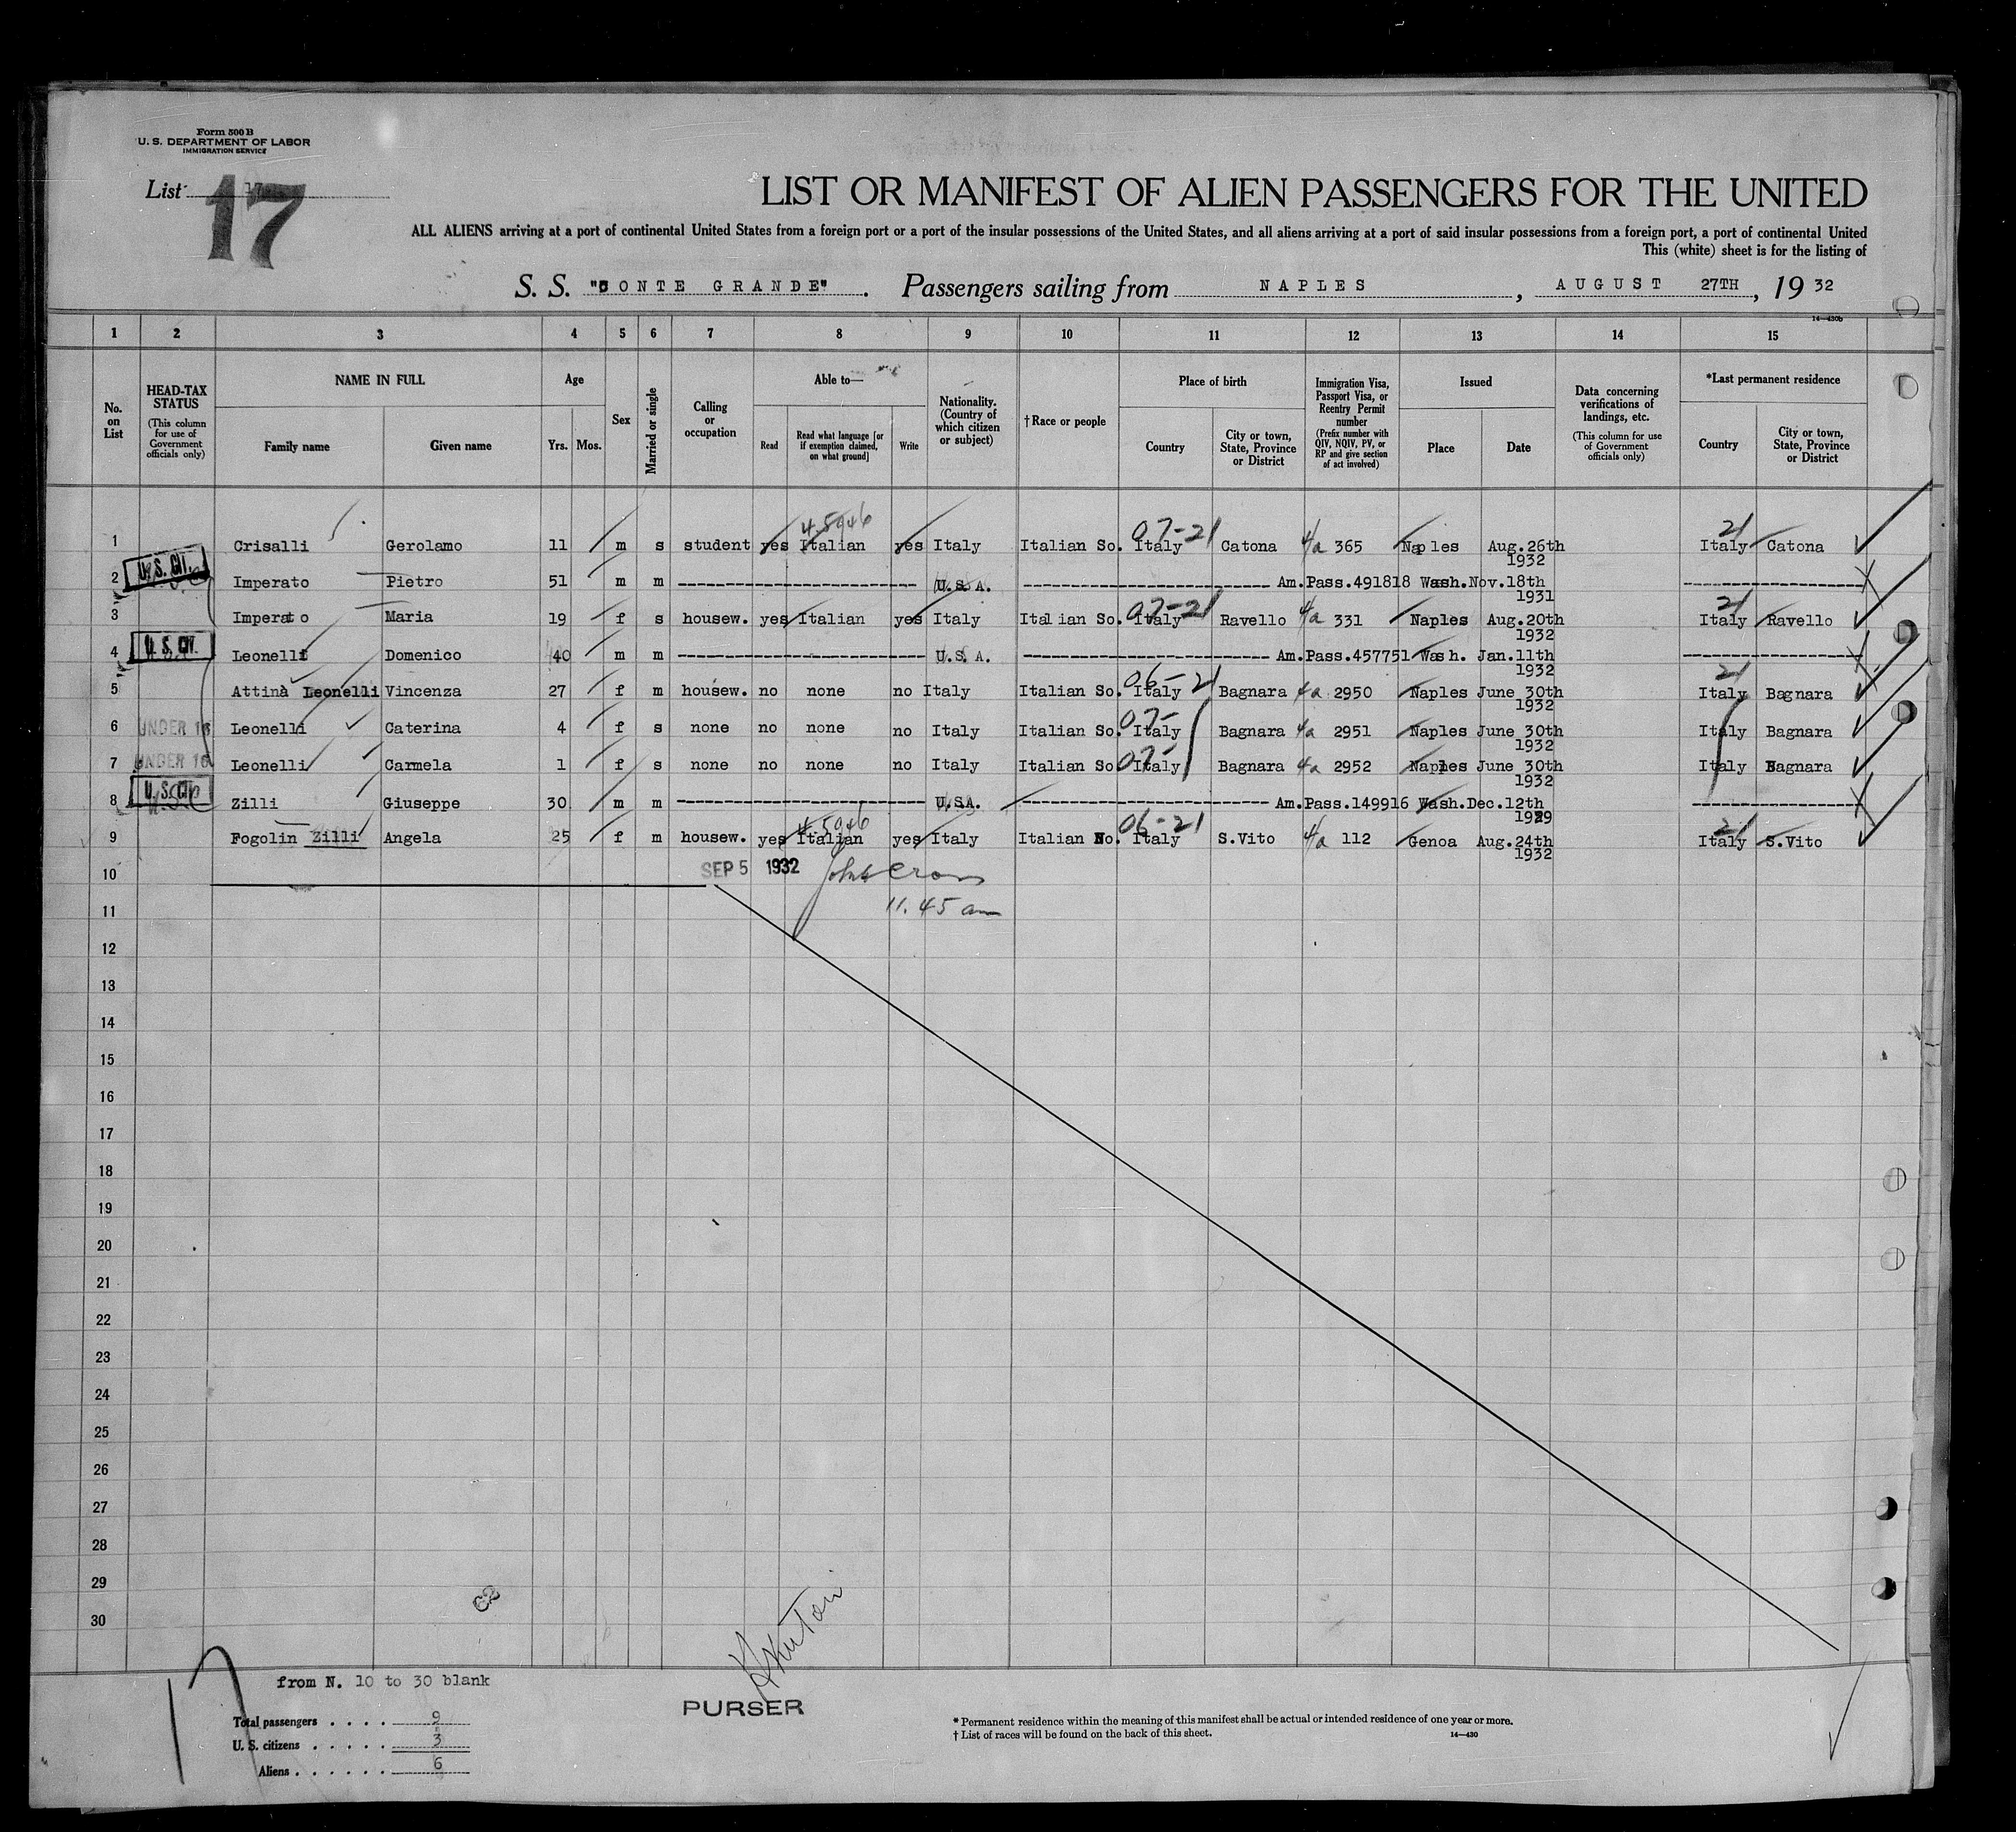 Form 500 B
U. S. DEPARTMENT OF LABOR
IMMIGRATION SERVICE
List 17
17
LIST OR MANIFEST OF ALIEN PASSENGERS FOR THE UNITED
ALL ALIENS arriving at a port of continental United States from a foreign port or a port of the insular possessions of the United States, and all aliens arriving at a port of said insular possessions from a foreign port, a port of continental United
This (white) sheet is for the listing of
S. S. "CONTE GRANDE". Passengers sailing from NAPLES, AUGUST 27TH, 1932
14—430b
1 2 3 4 5 6 7 8 9 10 11 12 13 14 15
No. on List
HEAD-TAX STATUS (This column for use of Government officials only)
NAME IN FULL
Family name Given name
Age
Yrs. Mos.
Sex
Married or single
Calling or occupation
Able to—
Read
Read what language [or if exemption claimed, on what ground]
Write
Nationality. (Country of which citizen or subject)
† Race or people
Place of birth
Country
City or town, State, Province or District
Immigration Visa, Passport Visa, or Reentry Permit number (Prefix number with QIV, NQIV, PV, or RP and give section of act involved)
Issued
Place Date
Data concerning verifications of landings, etc. (This column for use of Government officials only)
*Last permanent residence
Country
City or town, State, Province or District
45946 07-21 21
1 Crisalli Gerolamo 11 m s student yes Italian yes Italy Italian So. Italy Catona 4/a 365 Naples Aug.26th 1932 Italy Catona
2 U. S. CIT. Imperato Pietro 51 m m U.S.A. Am.Pass.491818 Wash.Nov.18th 1931
07-21 21
3 Imperato Maria 19 f s housew. yes Italian yes Italy Italian So. Italy Ravello 4/a 331 Naples Aug.20th 1932 Italy Ravello
4 U. S. CIT. Leonelli Domenico 40 m m U.S.A. Am.Pass.457751 Wash. Jan.11th 1932
06-21 21
5 Attinà Leonelli Vincenza 27 f m housew. no none no Italy Italian So. Italy Bagnara 4a 2950 Naples June 30th 1932 Italy Bagnara
07-
6 UNDER 16 Leonelli Caterina 4 f s none no none no Italy Italian So. Italy Bagnara 4a 2951 Naples June 30th 1932 Italy Bagnara
07-
7 UNDER 16 Leonelli Carmela 1 f s none no none no Italy Italian So. Italy Bagnara 4a 2952 Naples June 30th 1932 Italy Bagnara
8 U. S. CIT. Zilli Giuseppe 30 m m U.S.A. Am.Pass.149916 Wash.Dec.12th 1929
45946 06-21 21
9 Fogolin Zilli Angela 25 f m housew. yes Italian yes Italy Italian No. Italy S.Vito 4/a 112 Genoa Aug.24th 1932 Italy S.Vito
10 SEP 5 1932
11 11.45 am
12
13
14
15
16
17
18
19
20
21
22
23
24
25
26
27
28
29
30
C2
17
from N. 10 to 30 blank
Total passengers . . . . 9
U. S. citizens . . . . . 3
Aliens . . . . . . 6
PURSER
* Permanent residence within the meaning of this manifest shall be actual or intended residence of one year or more.
† List of races will be found on the back of this sheet.
14—430